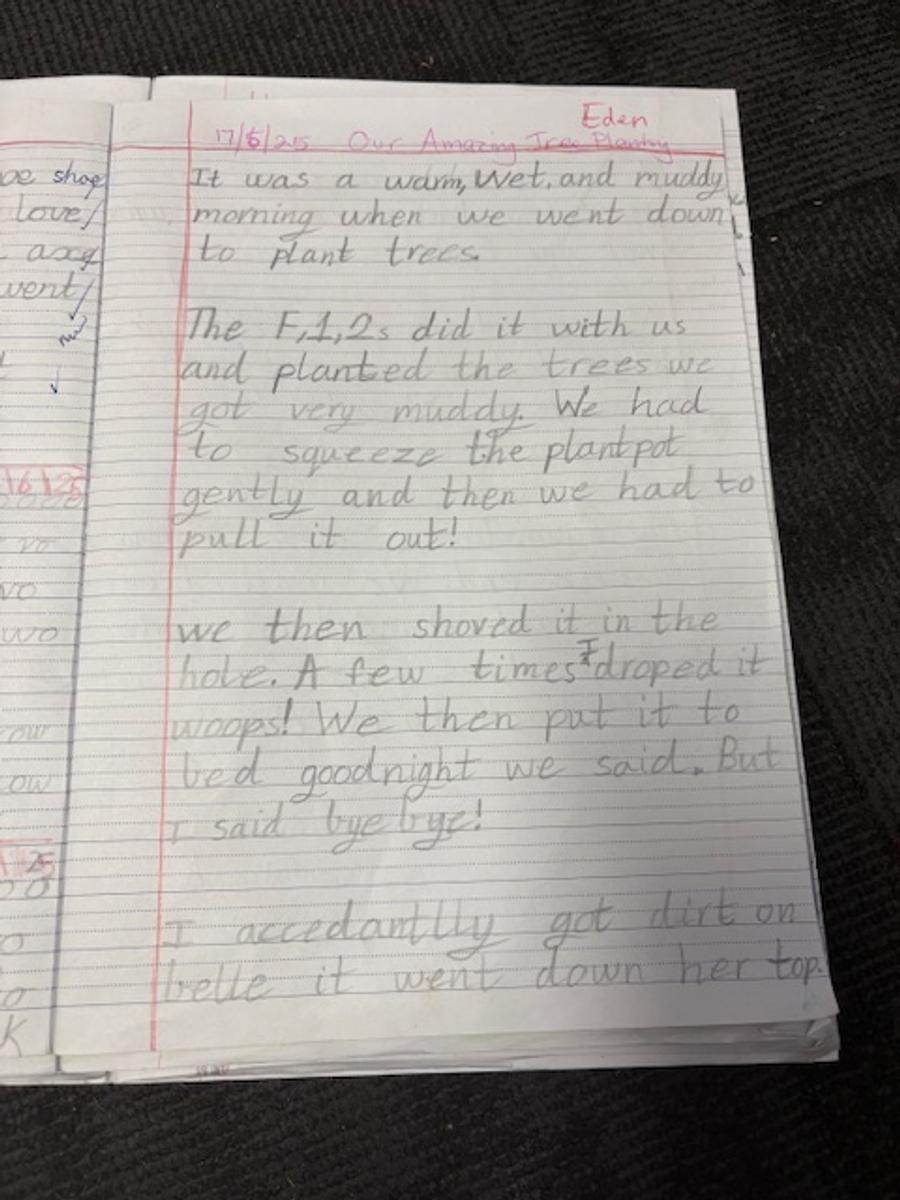 Eden
17/6/25 Our Amazing Tree Planting
It was a warm, wet, and muddy
morning when we went down
to plant trees.
The F,1,2s did it with us
and planted the trees we
got very muddy. We had
to squeeze the plantpot
gently and then we had to
pull it out!
we then shoved it in the
hole. A few times I droped it
woops! We then put it to
bed goodnight we said. But
I said bye bye!
I accedantlly got dirt on
belle it went down her top.
shop
love/
went/
25
vo
wo
ow
ow
25
K